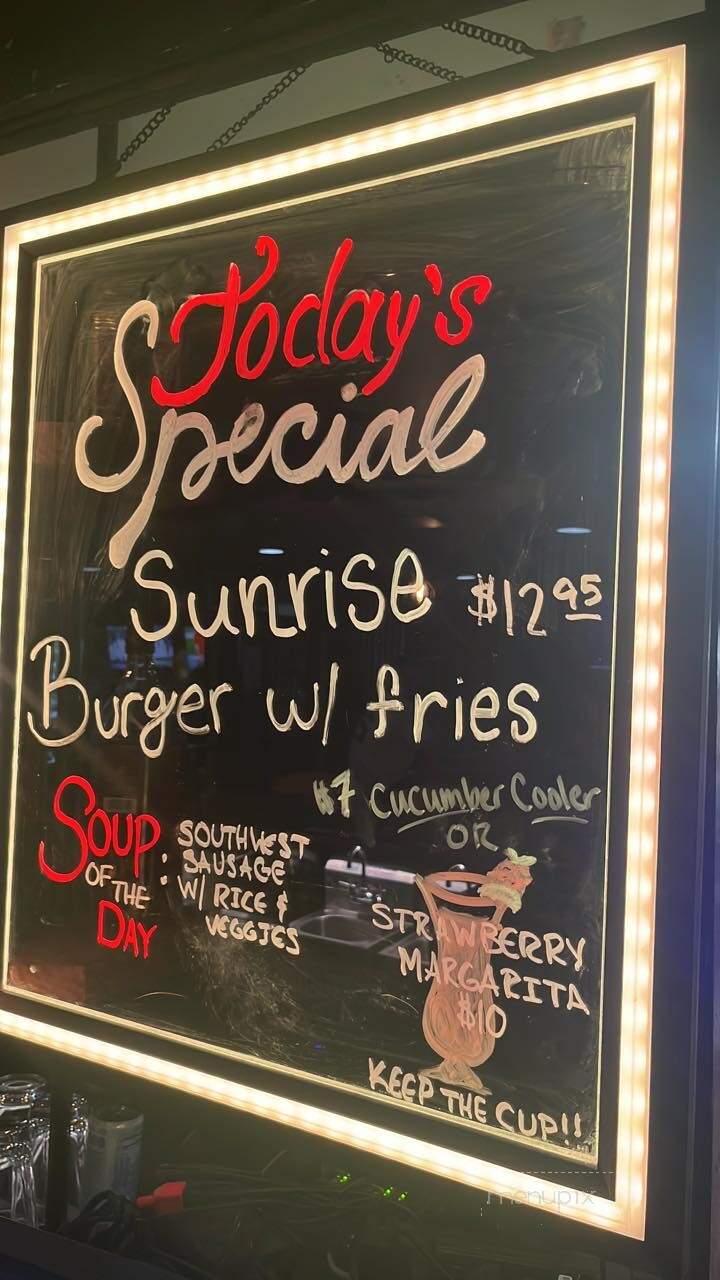 Today's
Special
Sunrise $12 95
Burger w/ fries
$7 Cucumber Cooler
OR
SOUP
OF THE
DAY
: SOUTHWEST
SAUSAGE
W/ RICE &
VEGGIES
STRAWBERRY
MARGARITA
$10
KEEP THE CUP!!
menupix